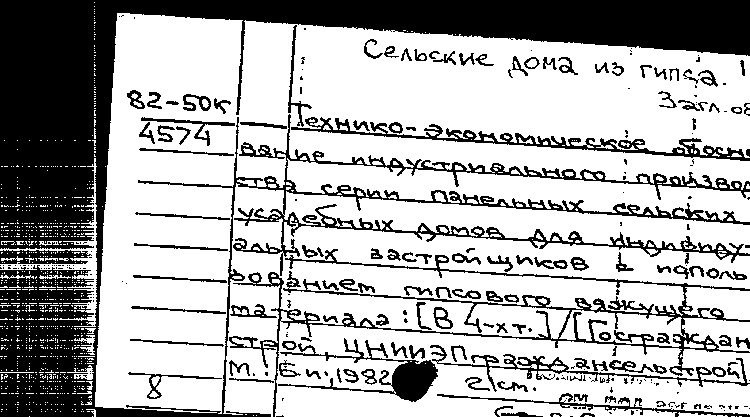 Сельские дома из гипса.
Загл. об
82-50к
4574
Технико-экономическое обосно
вание индустриального производ
ства серии панельных сельских
усадебных домов для индивиду
альных застройщиков с исполь
зованием гипсового вяжущего
материала: [В 4-х т.] / [Госграждан
строй, ЦНИИЭПграждансельстрой]
М.: Б.и., 1982 2/см.
8